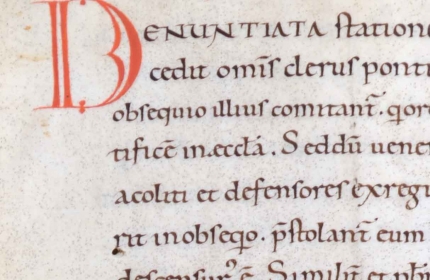 DENUNTIATA station
cedit omīs clerus ponti
obsequio illius comitant̄. qōr
tificē in eccłā. Seddū uener
acoliti et defensores exregi
rit inobseqo. p̄stolant̄ eum